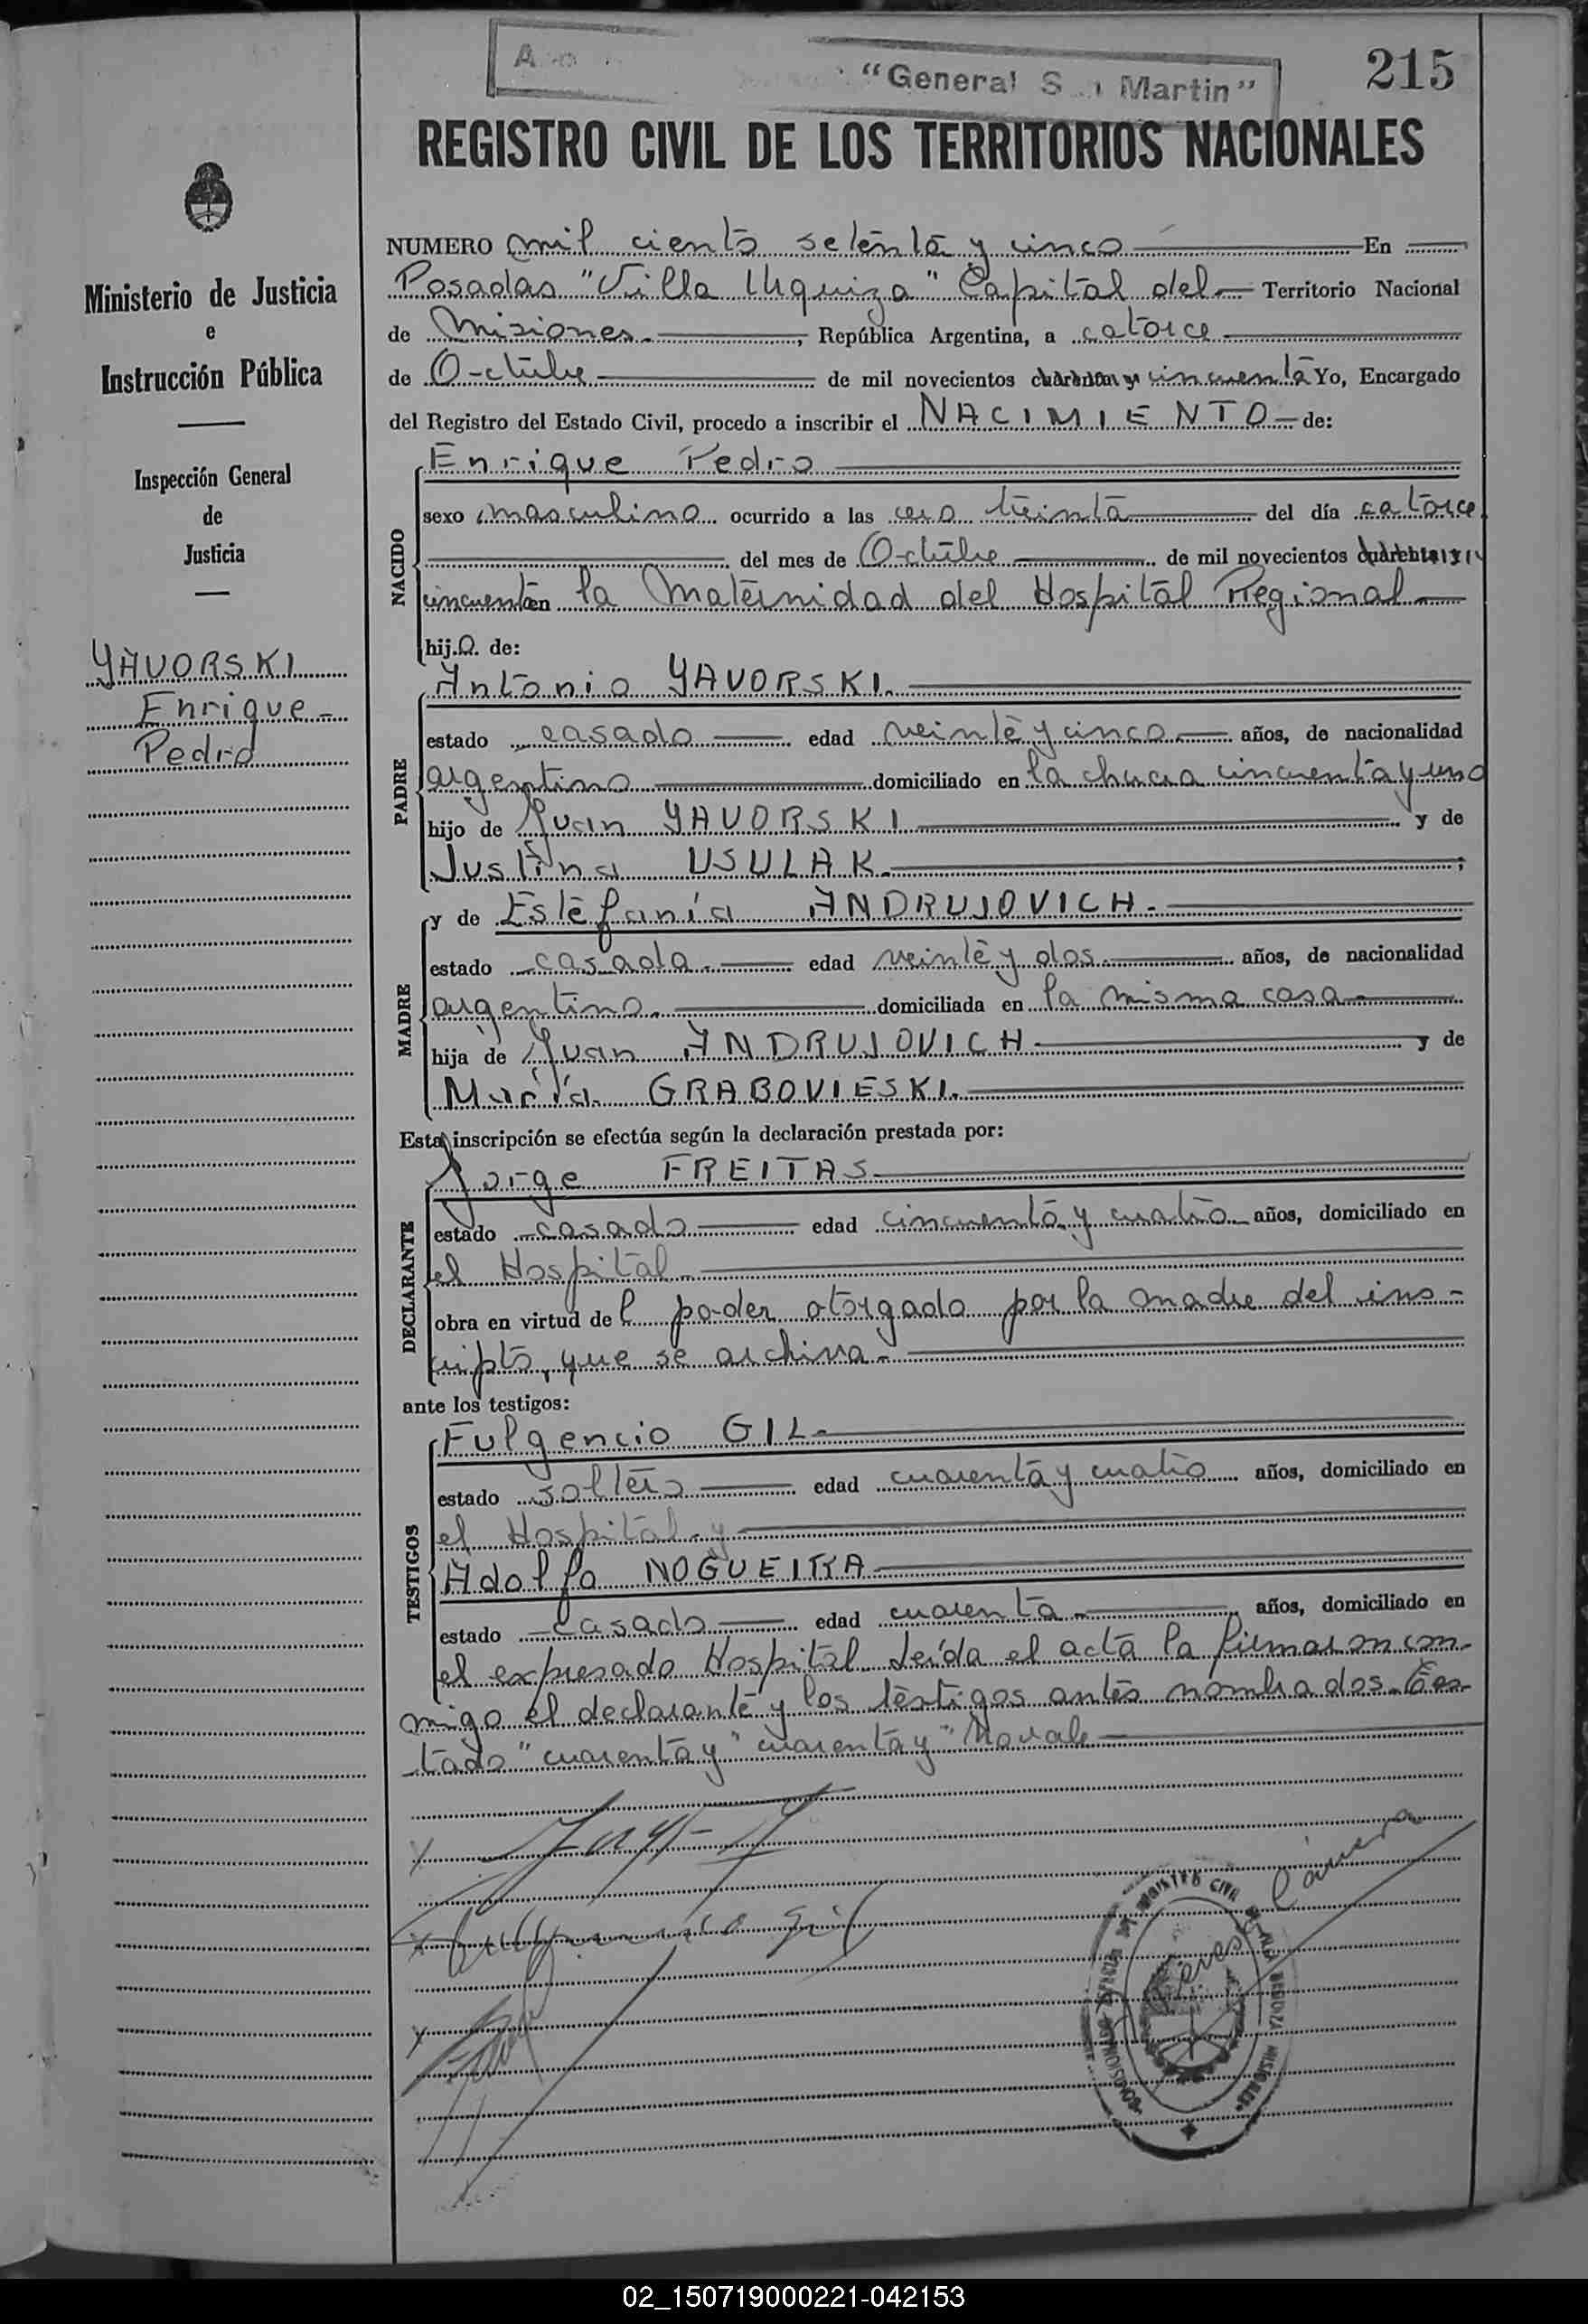 "General S n Martin"
215
REGISTRO CIVIL DE LOS TERRITORIOS NACIONALES
Ministerio de Justicia
e
Instrucción Pública
Inspección General
de
Justicia
YAVORSKI
Enrique-
Pedro
NUMERO mil ciento setenta y cinco En
Posadas "Villa Urquiza" Capital del Territorio Nacional
de Misiones. , República Argentina, a catorce
de Octubre de mil novecientos cuarenta y cincuenta Yo, Encargado
del Registro del Estado Civil, procedo a inscribir el NACIMIENTO de:
NACIDO
Enrique Pedro
sexo masculino ocurrido a las cero treinta del día catorce
del mes de Octubre de mil novecientos cuarenta y
cincuenta en la Maternidad del Hospital Regional
hijo de:
PADRE
Antonio YAVORSKI.
estado casado edad veinte y cinco años, de nacionalidad
argentino domiciliado en la chacra cincuenta y uno
hijo de Juan YAVORSKI y de
Justina USULAK. ;
MADRE
y de Estefanía ANDRUJOVICH.
estado casada. edad veinte y dos. años, de nacionalidad
argentina. domiciliada en la misma casa
hija de Juan ANDRUJOVICH y de
María GRABOVIESKI.
Esta inscripción se efectúa según la declaración prestada por:
DECLARANTE
Jorge FREITAS
estado casado edad cincuenta y cuatro años, domiciliado en
el Hospital
obra en virtud del poder otorgado por la madre del ins-
cripto, que se archiva.
ante los testigos:
TESTIGOS
Fulgencio GIL.
estado soltero edad cuarenta y cuatro años, domiciliado en
el Hospital. y
Adolfo NOGUEIRA
estado casado edad cuarenta años, domiciliado en
el expresado Hospital. Leída el acta la firmaron con-
migo el declarante y los testigos antes nombrados. Tes-
tado "cuarenta y" cuarenta y" No vale
x
x Fulgencio Gil
x
REGISTRO CIVIL
MISIONES
02_150719000221-042153